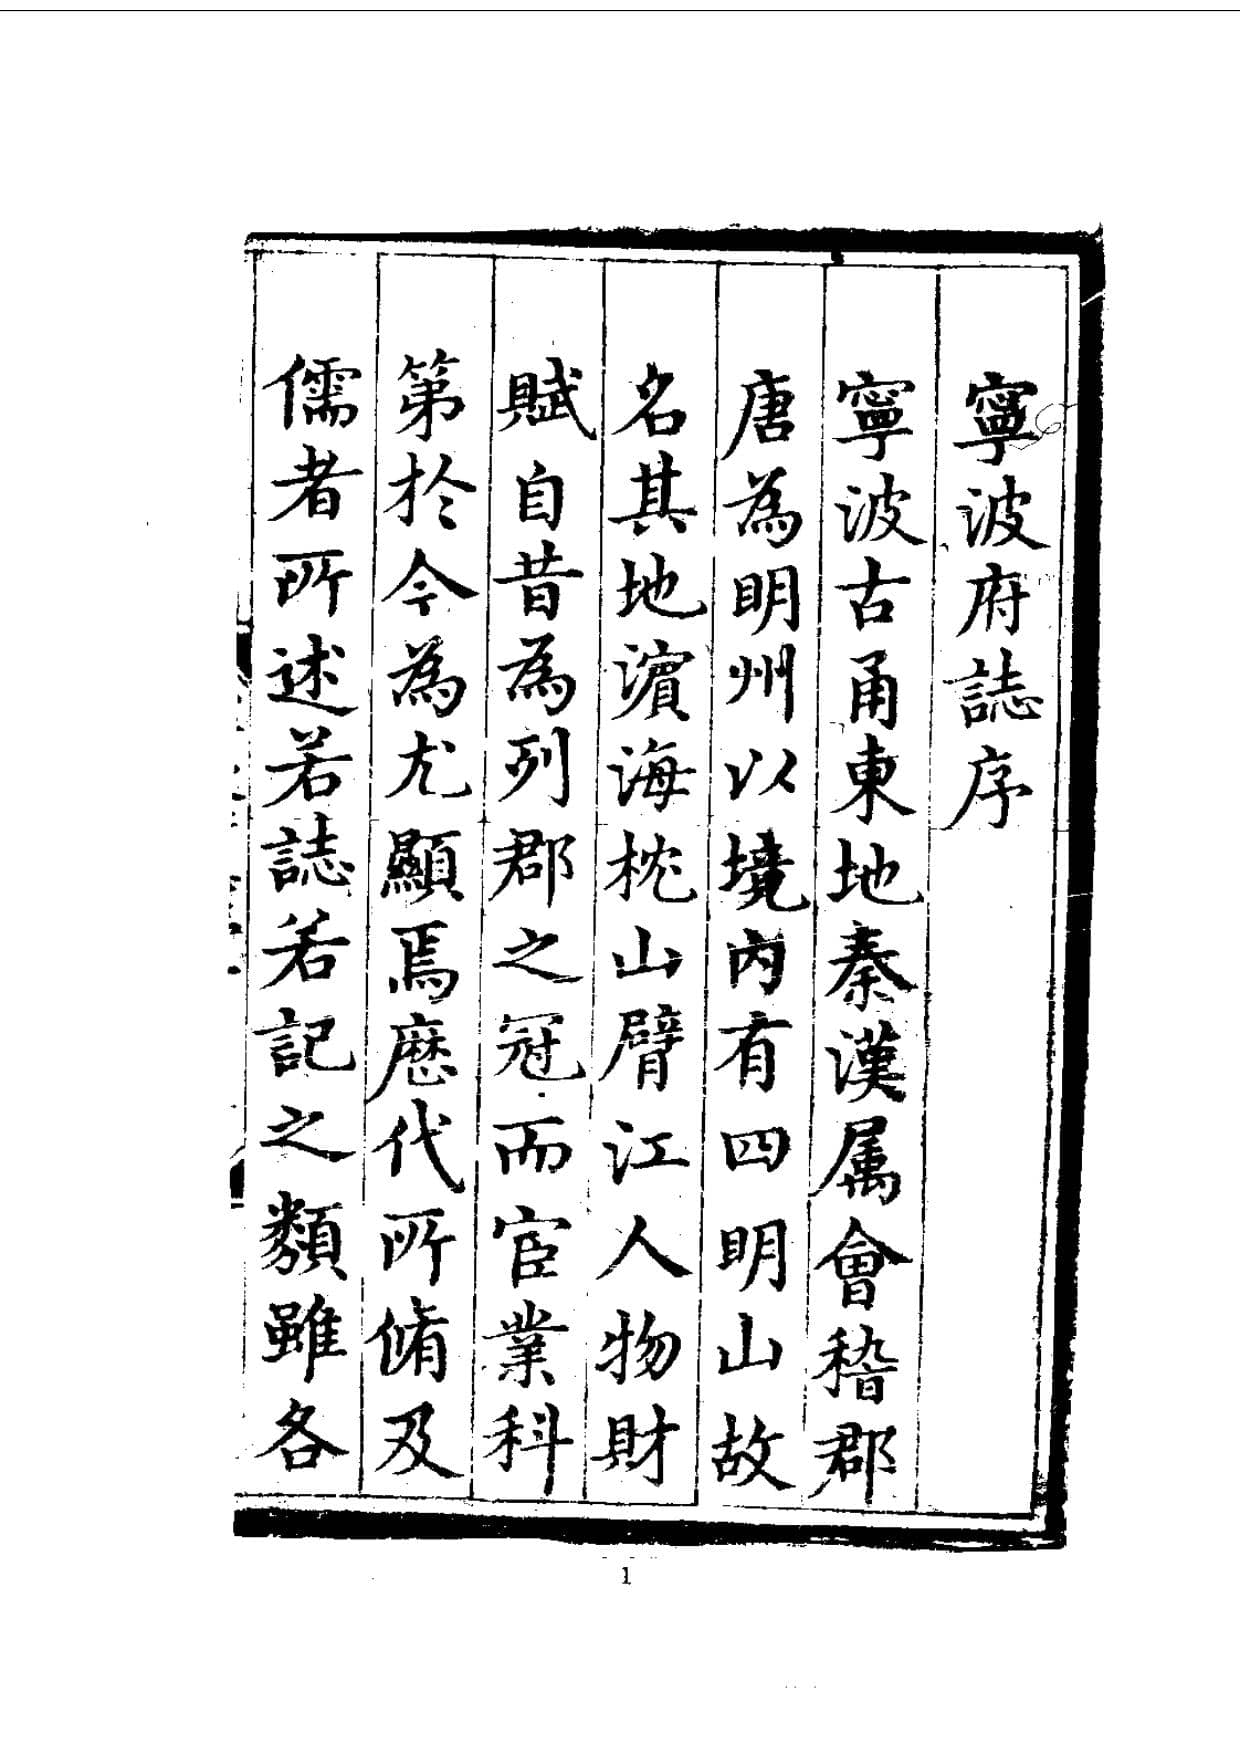 寧波府誌序
寧波古甬東地秦漢属會稽郡
唐為明州以境內有四明山故
名其地濵海枕山臂江人物財
賦自昔為列郡之冠而宦業科
第於今為尤顯焉歷代所脩及
儒者所述若誌若記之類雖各
1